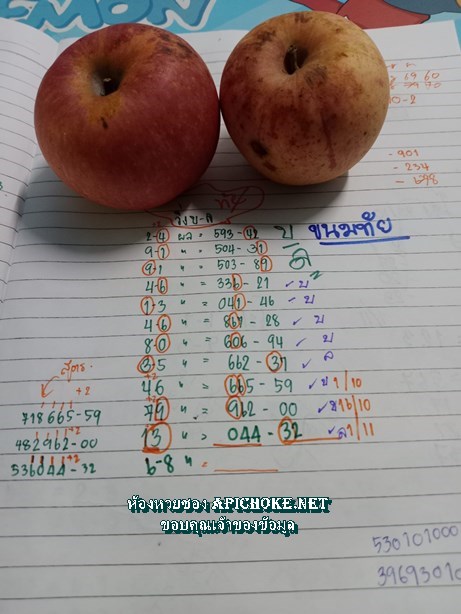 EMON
69 60
10-2
- 901
- 234
- 698
ทัย
วิ่ง บ-ล
2-4 ผล = 593-42
บ ขนมทัย
9-1 " = 504-31
9-1 " = 503-89
4-6 " = 336-21 ✓ บ
1-3 " = 041-46 ✓ บ
4-6 " = 867-28 ✓ บ
8-0 " = 606-94 ✓ บ
3-5 " = 662-37 ✓ ล
สูตร
+2
46 " = 665-59 ✓ บ 1/10
718665-59
79 " = 962-00 ✓ บ 16/10
482962-00
13 " = 044-32 ✓ ล 1/11
+2
536044-32
6-8 " =
ห้องหวยซอง APICHOKE.NET
ขอบคุณเจ้าของข้อมูล
530101000
3969301